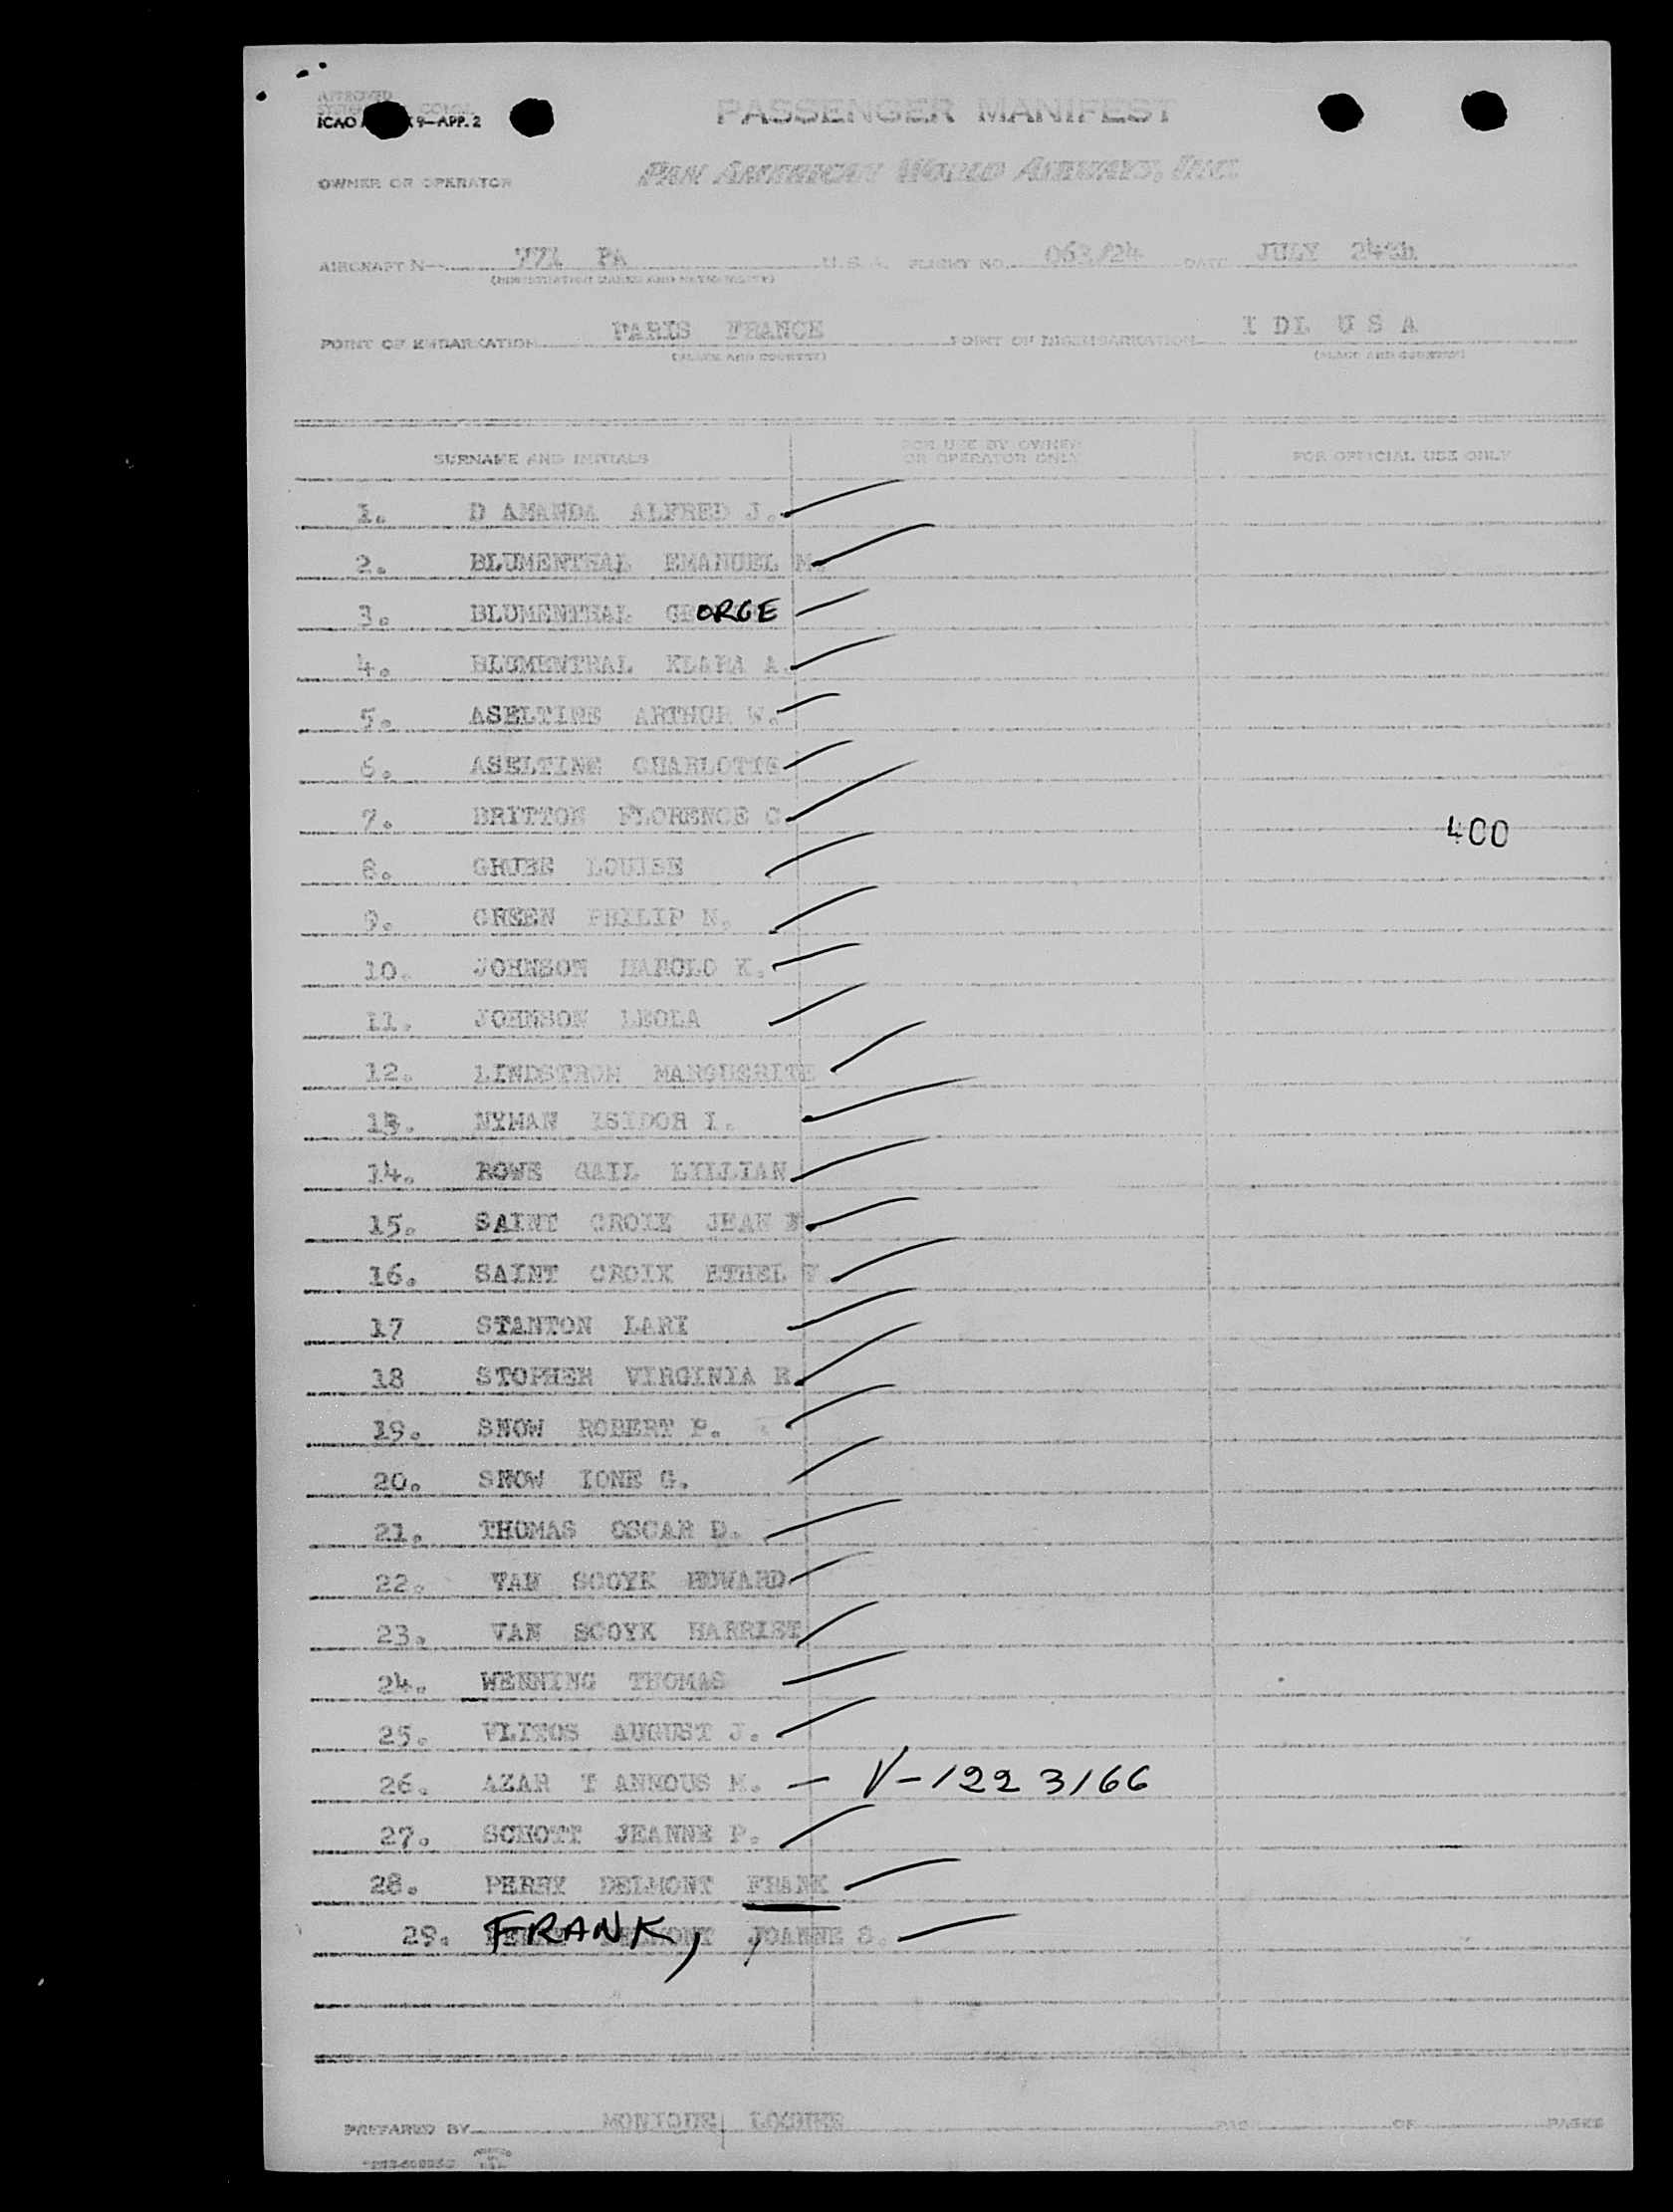 APPROVED
ICAO 9—APP. 2
PASSENGER MANIFEST
OWNER OR OPERATOR
PAN AMERICAN WORLD AIRWAYS, INC.
AIRCRAFT N— 771 PA U.S.A. FLIGHT NO. 063/24 DATE JULY 24th
(REGISTRATION MARKS AND NATIONALITY)
POINT OF EMBARKATION PARIS FRANCE POINT OF DISEMBARKATION I DL U S A
(PLACE AND COUNTRY) (PLACE AND COUNTRY)
SURNAME AND INITIALS
FOR USE BY OWNER
OR OPERATOR ONLY
FOR OFFICIAL USE ONLY
1. D AMANDA ALFRED J.
2. BLUMENTHAL EMANUEL M.
3. BLUMENTHAL GEORGE
4. BLUMENTHAL KLARA A.
5. ASELTINE ARTHUR W.
6. ASELTINE CHARLOTTE
7. BRITTON FLORENCE C.
400
8. GRUBE LOUISE
9. GREEN PHILIP N.
10. JOHNSON HAROLD K.
11. JOHNSON LEOLA
12. LINDSTROM MARGUERITE
13. NYMAN ISIDOR I.
14. ROWE GAIL LILLIAN
15. SAINT CROIX JEAN
16. SAINT CROIX ETHEL
17 STANTON LARY
18 STOPHER VIRGINIA R.
19. SNOW ROBERT P.
20. SNOW IONE G.
21. THOMAS OSCAR D.
22. VAN SCOYK HOWARD
23. VAN SCOYK HARRIET
24. WENNING THOMAS
25. AUGUST J.
26. AZAR T ANNOUS M. — V-1223166
27. SCHOTT JEANNE P.
28. PERRY DELMONT FRANK
29. FRANK, DELMONT JOANNE S.
PREPARED BY MONIQUE PAG OF PAGES